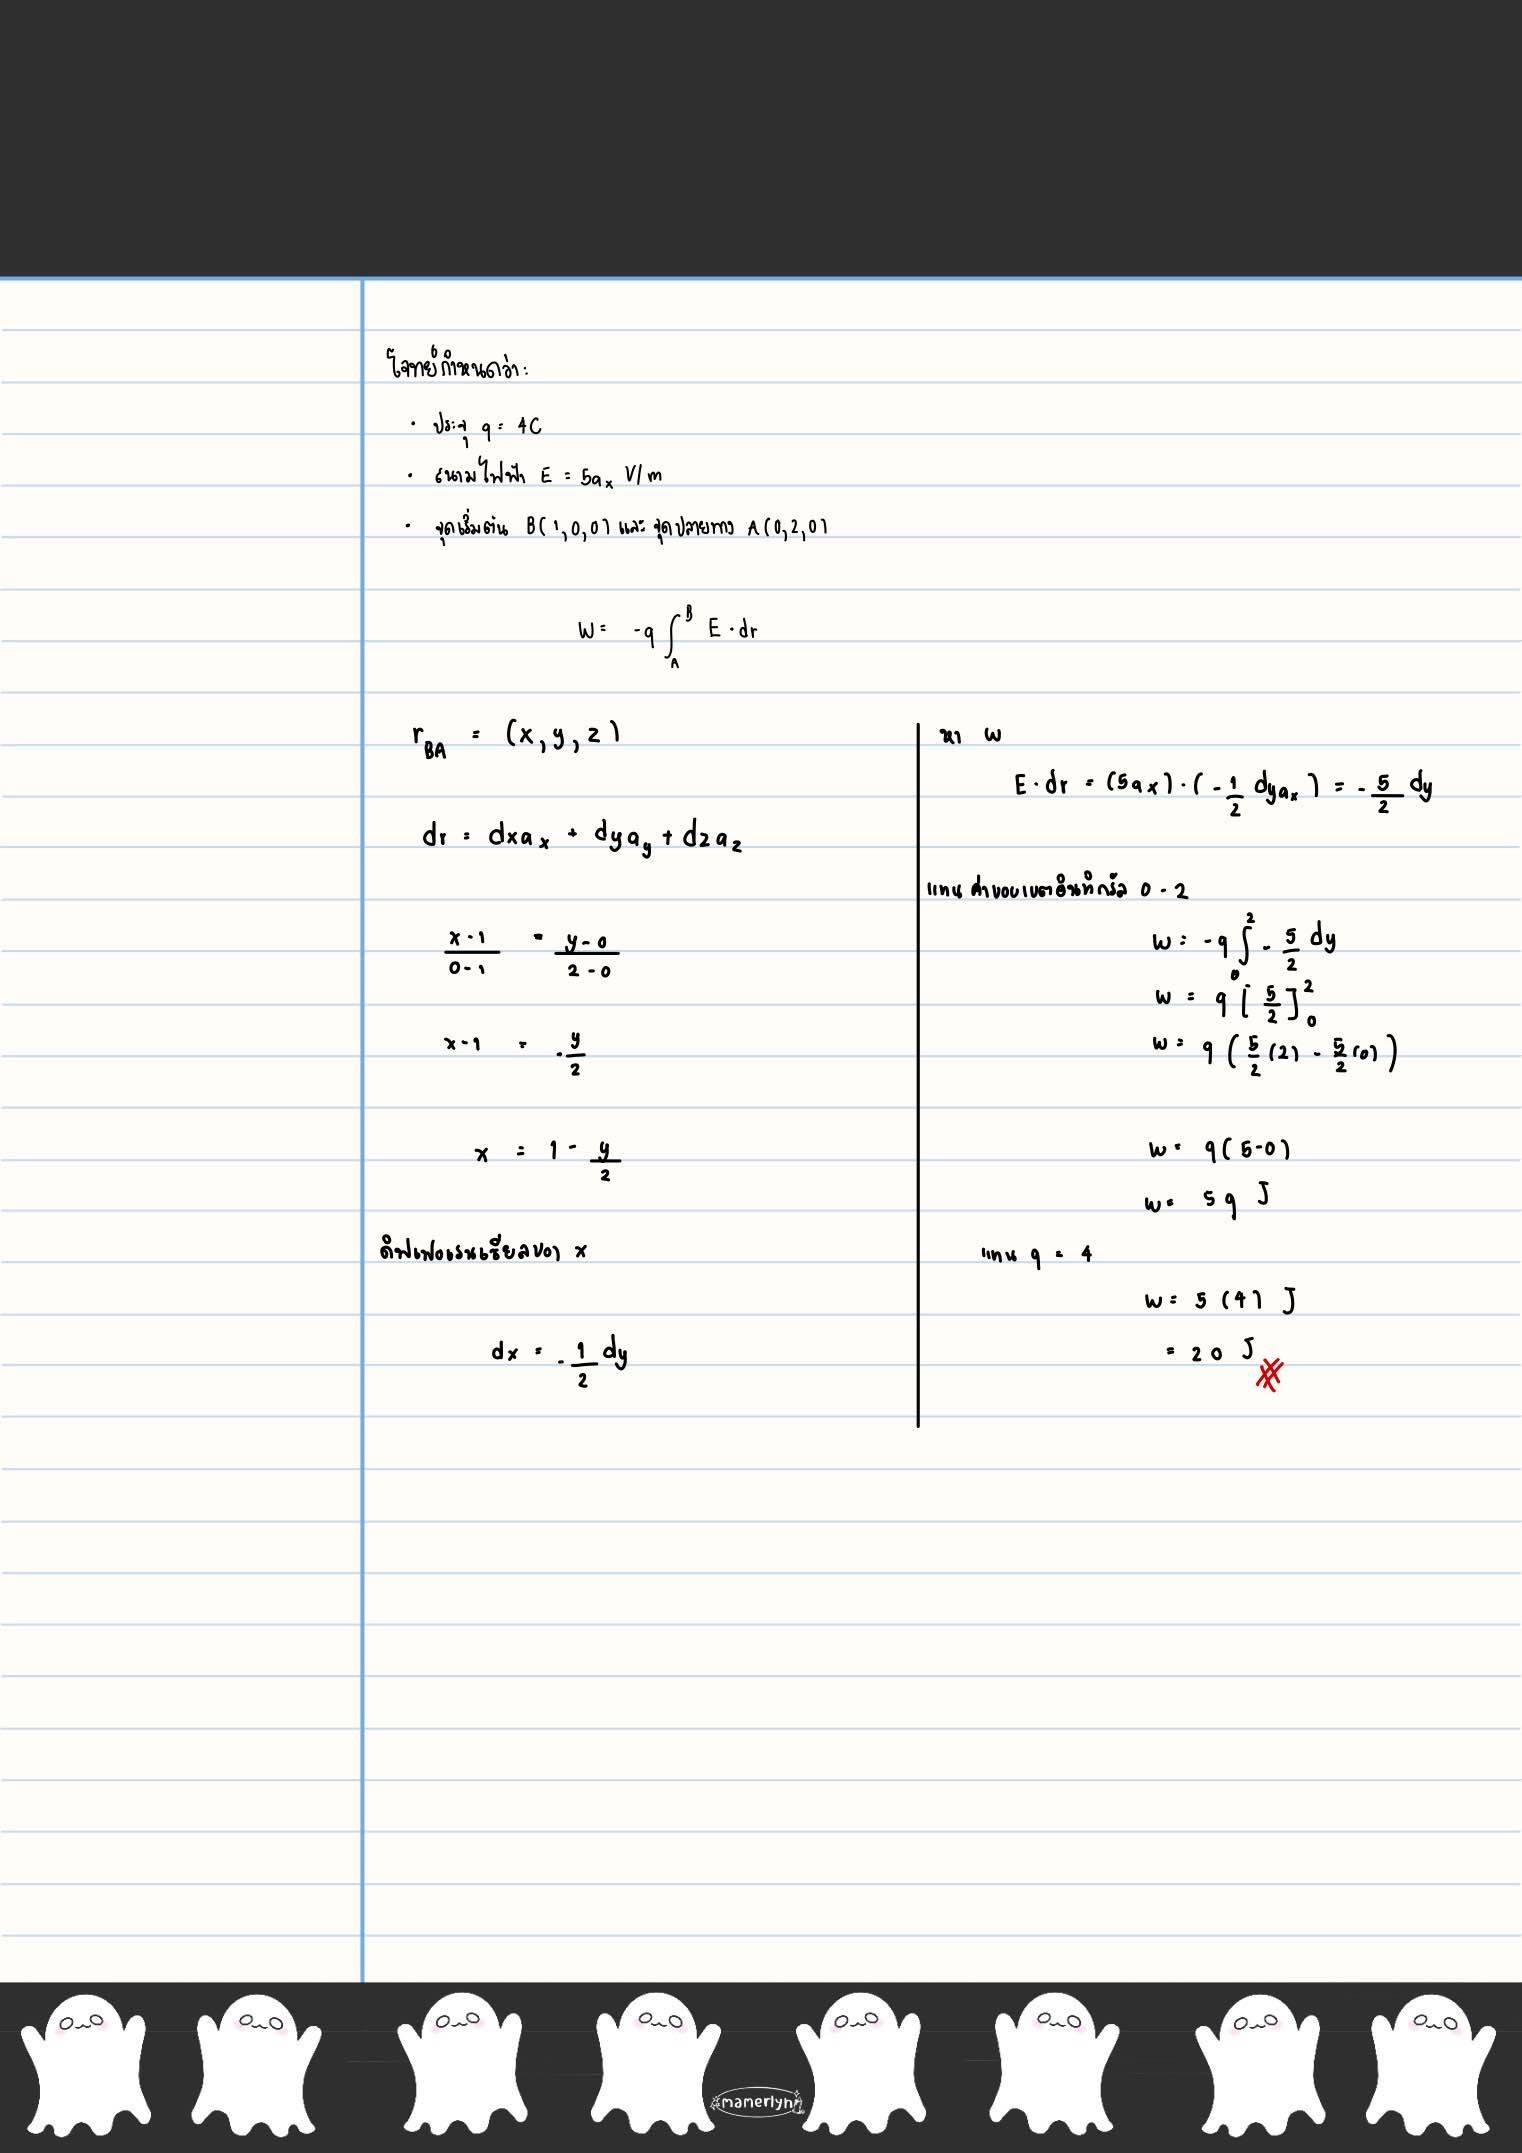 โจทย์กำหนดว่า:
• ประจุ q = 4C
• สนามไฟฟ้า E = 5aₓ V/m
• จุดเริ่มต้น B(1,0,0) และ จุดปลายทาง A(0,2,0)
W = -q ∫_A^B E · dr
r_BA = (x, y, z)
dr = dxaₓ + dya_y + dza_z
(x-1)/(0-1) = (y-0)/(2-0)
x-1 = -y/2
x = 1 - y/2
ดิฟเฟอเรนเชียลของ x
dx = -1/2 dy
หา W
E · dr = (5aₓ) · (-1/2 dyaₓ) = -5/2 dy
แทน ค่าขอบเขตอินทิกรัล 0 - 2
W = -q ∫_0^2 - 5/2 dy
W = q [5/2]_0^2
W = q (5/2 (2) - 5/2 (0))
W = q (5-0)
W = 5q J
แทน q = 4
W = 5 (4) J
= 20 J
mamerlyn